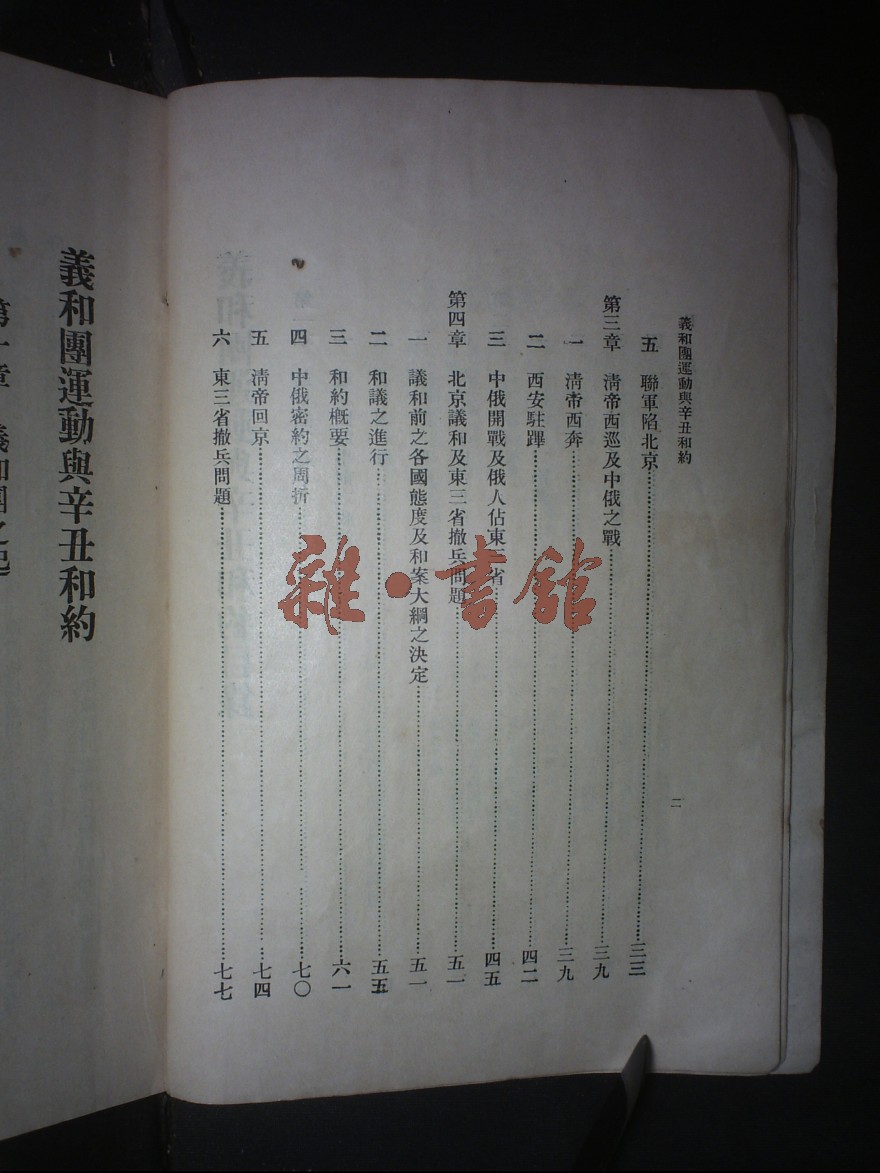 義和團運動與辛丑和約
二
五 聯軍陷北京 三三
第三章 清帝西巡及中俄之戰 三九
一 清帝西奔 三九
二 西安駐蹕 四二
三 中俄開戰及俄人佔東三省 四五
第四章 北京議和及東三省撤兵問題 五一
一 議和前之各國態度及和案大綱之決定 五一
二 和議之進行 五五
三 和約概要 六一
四 中俄密約之周折 七〇
五 清帝回京 七四
六 東三省撤兵問題 七七
義和團運動與辛丑和約
雜·書館